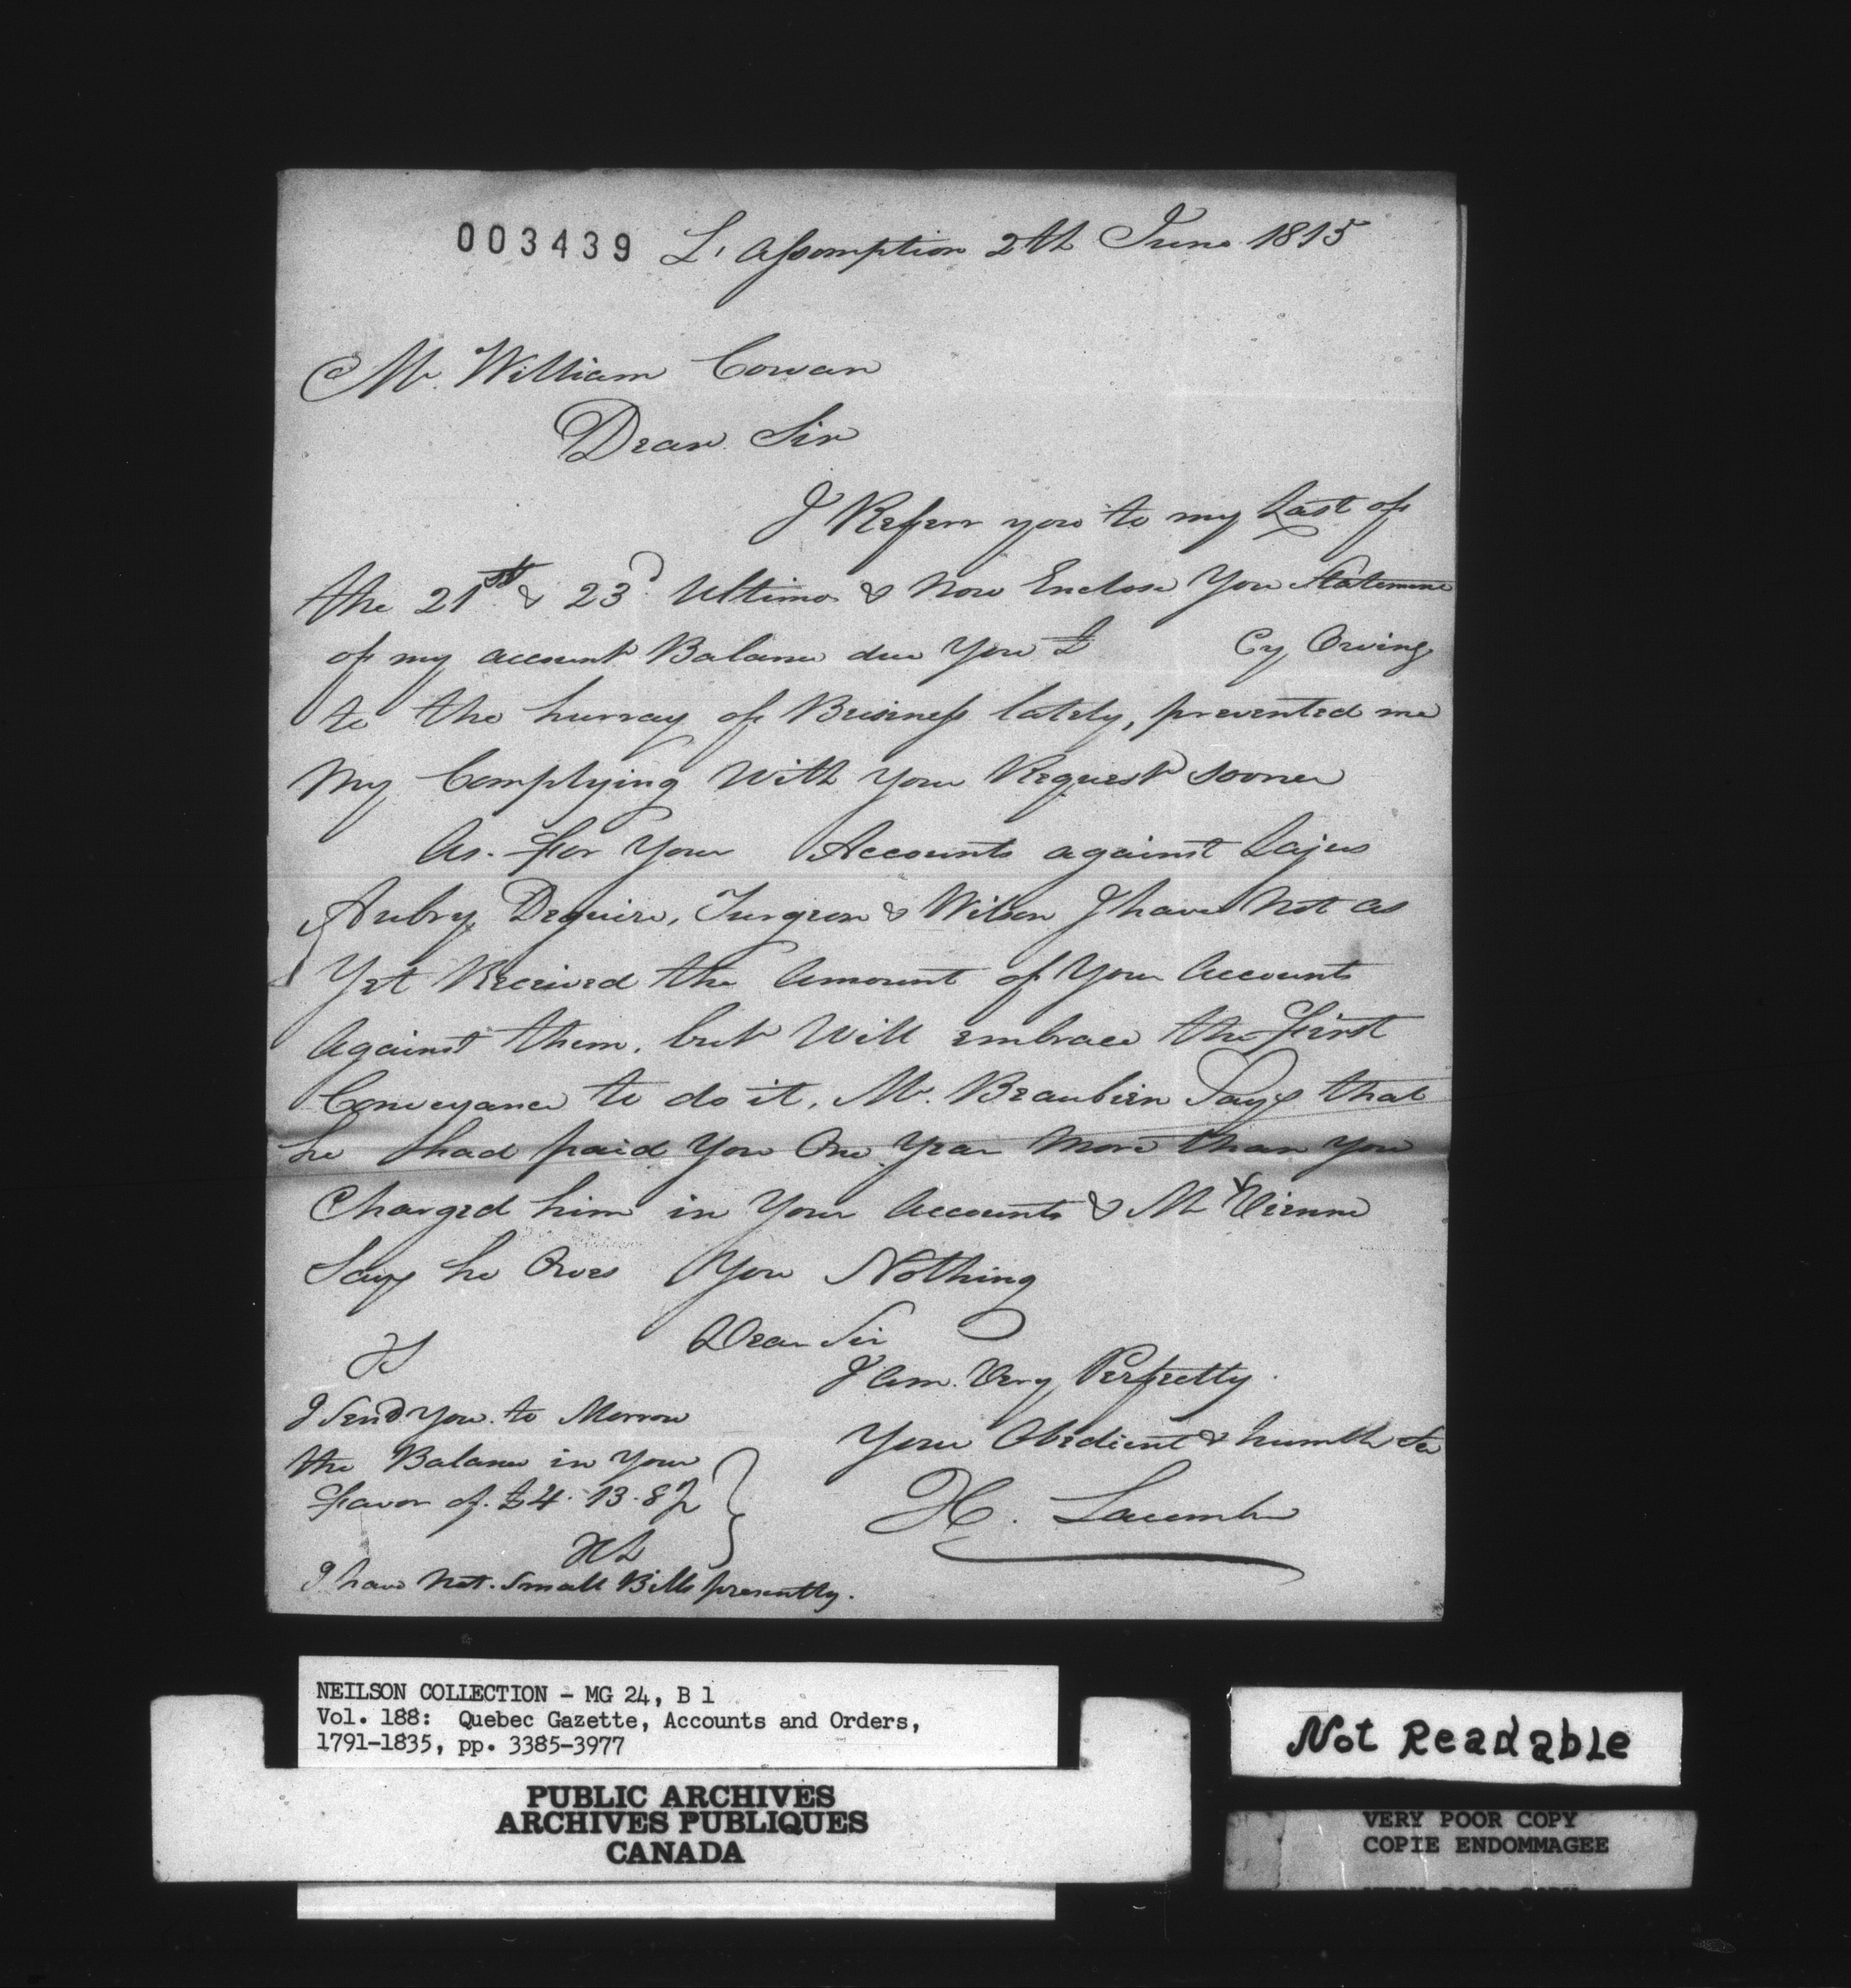 003439 L'assomption 2th June 1815
Mr. William Cowan
Dear Sir
I Referr you to my Last of
the 21st & 23d Ultimo & now Enclose You Statement
of my account Balance due You £ Cy Owing
to the hurray of Business lately, prevented me
My Complying With your Request sooner
As for Your Accounts against Lajus
Aubry, Deguire, Turgeon & Wilson I have Not as
Yet Received the Amount of Your Accounts
Against them. but Will embrace the First
Conveyance to do it. Mr. Beaubien Says that
he had paid You One Year More than you
Charged him in Your Accounts & Mr Vienne
Says he Owes You Nothing
Dear Sir
I am Very Perfectly
Your Obedient & humble Se
H. Lacombe
I Send You to Morrow
the Balance in Your
Favor of £4.13.8
HL
I have Not Small Bills presently.
NEILSON COLLECTION - MG 24, B 1
Vol. 188: Quebec Gazette, Accounts and Orders,
1791-1835, pp. 3385-3977
PUBLIC ARCHIVES
ARCHIVES PUBLIQUES
CANADA
Not Readable
VERY POOR COPY
COPIE ENDOMMAGEE